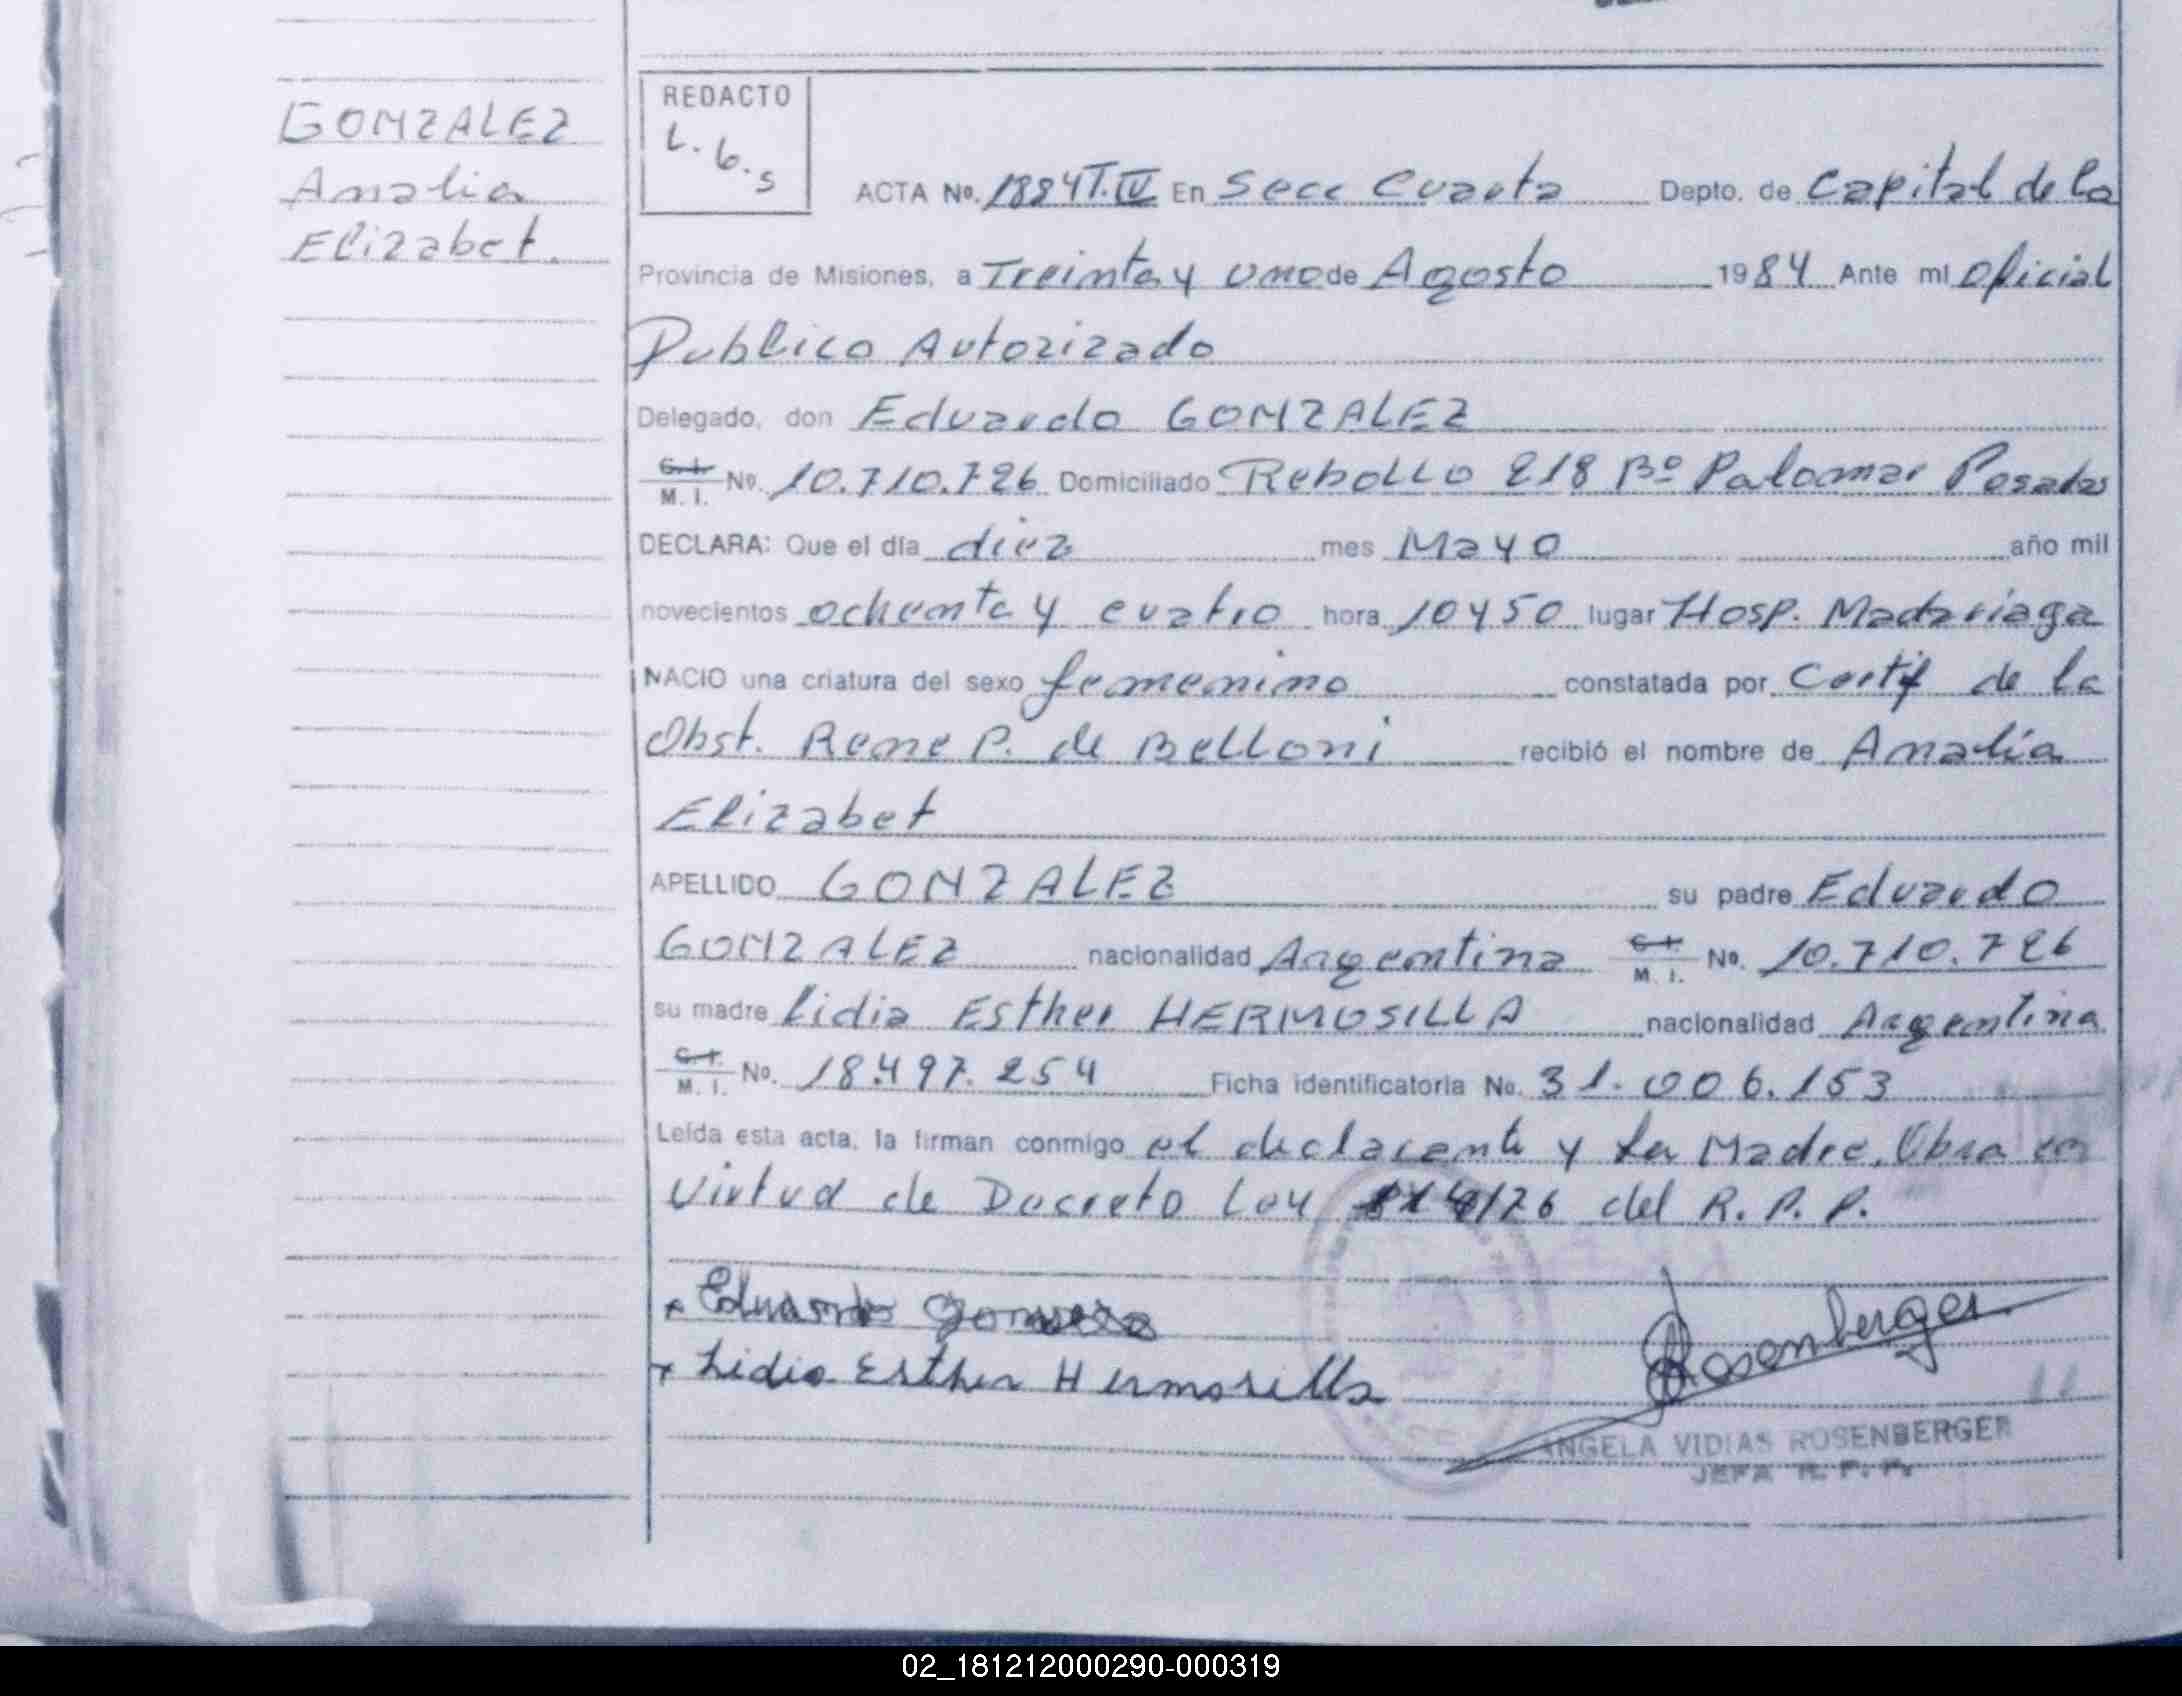 GONZALEZ
Analia
Elizabet.
REDACTO
L. b. s
ACTA No. 1884 T. IV En Secc Cuarta Depto. de Capital de la
Provincia de Misiones, a Treinta y uno de Agosto 1984 Ante mi Oficial
Publico Autorizado
Delegado, don Eduardo GONZALEZ
C. I. M. I. No. 10.710.726 Domiciliado Rebollo 218 Bº Palomar Posadas
DECLARA: Que el día diez mes Mayo año mil
novecientos ochenta y cuatro hora 10 y 50 lugar Hosp. Madariaga
NACIO una criatura del sexo femenino constatada por Certif de la
Obst. Rene P. de Belloni recibió el nombre de Analía
Elizabet
APELLIDO GONZALEZ su padre Eduardo
GONZALEZ nacionalidad Argentina C. I. M. I. No. 10.710.726
su madre Lidia Esther HERMOSILLA nacionalidad Argentina
C. I. M. I. No. 18.497.254 Ficha identificatoria No. 31.006.153
Leída esta acta, la firman conmigo el declarante y la Madre. Obra en
Virtud de Decreto Ley del R. P. P.
Eduardo Gonzalez
Lidia Esther Hermosilla
Rosenberger
ANGELA VIDIAS ROSENBERGER
JEFA R. P. P.
02_181212000290-000319